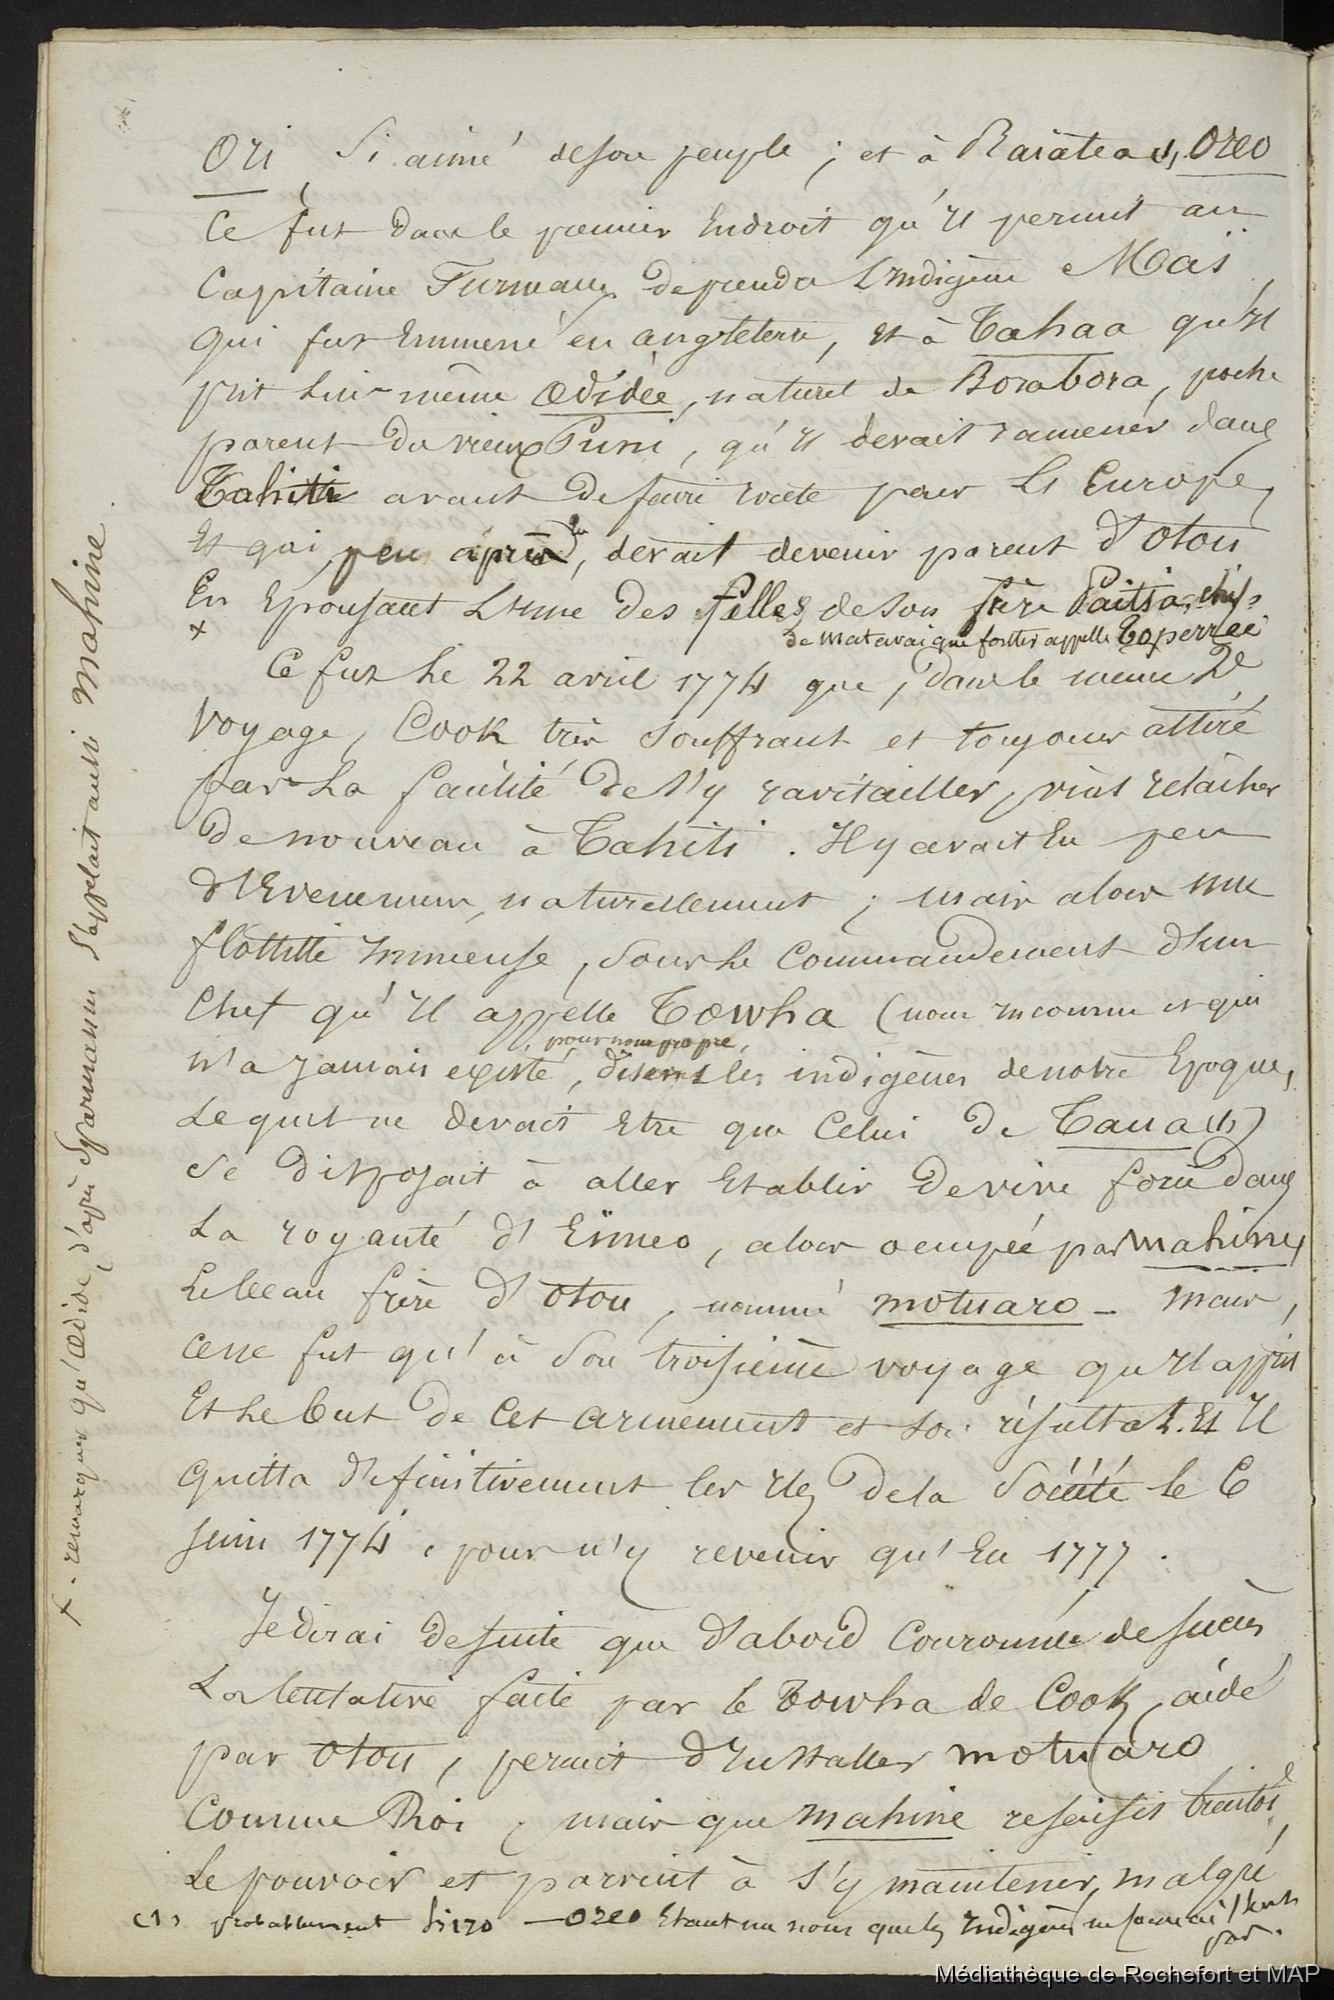 Ori, si aimé de son peuple ; et à Raiatea (1), Oreo
Ce fut dans le premier Endroit qu'il permit au
Capitaine Furneaux de prendre l'indigène Maï
qui fut Emmené en angleterre, et à Tahaa qu'il
prit lui-même Œdidée, naturel de Borabora, proche
parent du vieux Puni, qu'il devait ramener dans
Tahiti avant de faire route pour l'Europe,
et qui, peu après, devait devenir parent d'Otou
En Epousant l'une des filles de son frère Paitia, chef
de Matavai que forster appelle Toperree
x
Ce fut le 22 avril 1774 que, dans le même 2e
Voyage, Cook très souffrant et toujours attiré
par la facilité de s'y ravitailler, vint relâcher
de nouveau à Tahiti. Il y avait Eu peu
d'Evenemens, naturellement ; mais alors une
flottille immense, sous le Commandement d'un
Chef qu'il appelle Towha (nom inconnu et qui
pour nom propre,
n'a jamais existé, disent les indigènes de notre Epoque,
lequel ne devait Etre que Celui de Taua (1))
se disposait à aller Etablir de vive force dans
la royauté d'Eïmeo, alors occupée par Mahine,
le beau frère d'Otou, nommé Motuaro - Mais,
ce ne fut qu'à son troisième voyage qu'il apprit
Et le but de Cet armement et son résultat. Et Il
quitta définitivement les Iles de la Société le 6
Juin 1774, pour n'y revenir qu'En 1777.
Je dirai de suite que d'abord Couronnée de succès
la tentative faite par le Towha de Cook, aidé
par Otou, permit d'Installer Motuaro
Comme Roi, mais que Mahine ressaisit bientôt
le pouvoir et parvint à s'y maintenir, malgré
(1) probablement hiro — Oreo Etant un nom que les Indigènes ne
x - remarquer qu'Œdidée, d'après Sparmann s'appelait aussi Mahine.
Médiathèque de Rochefort et MAP